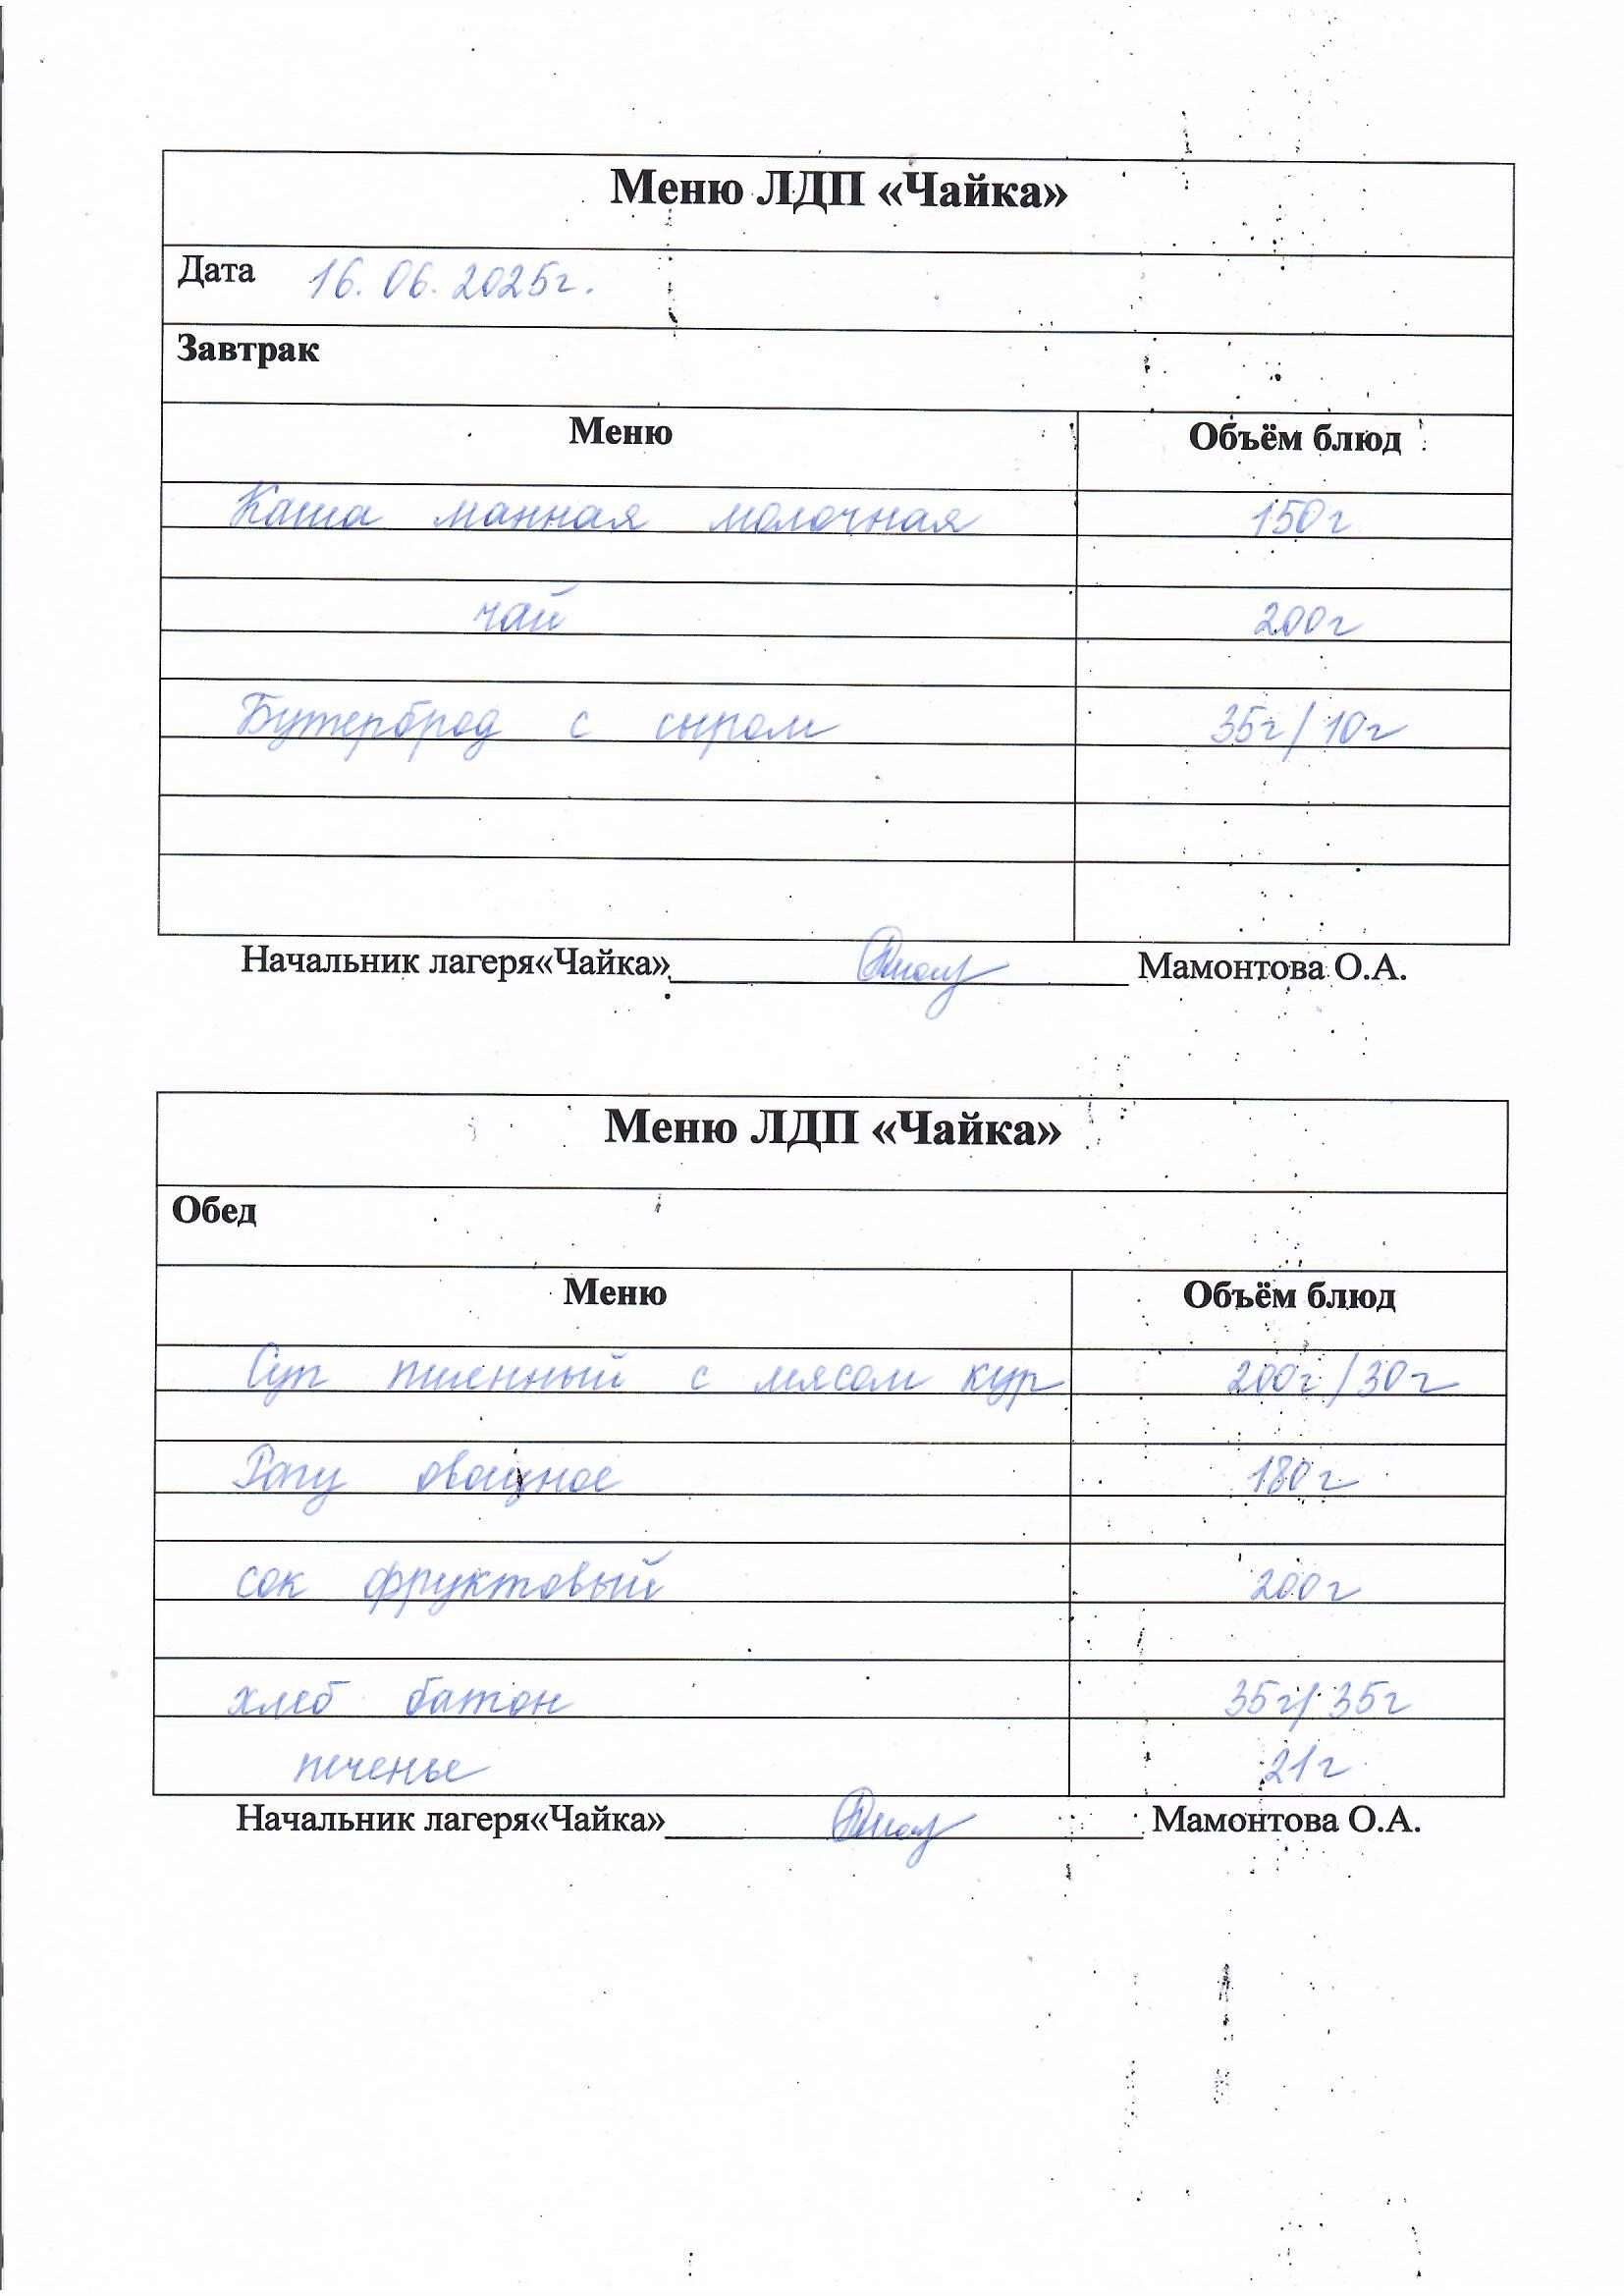 Меню ЛДП «Чайка»
Дата 16.06.2025г.
Завтрак
Меню Объём блюд
Каша манная молочная 150г
чай 200г
Бутерброд с сыром 35г/10г
Начальник лагеря«Чайка» Мамонтова О.А.
Меню ЛДП «Чайка»
Обед
Меню Объём блюд
Суп пшенный с мясом кур 200г/30г
Рагу овощное 180г
сок фруктовый 200г
хлеб батон 35г/35г
печенье 21г
Начальник лагеря«Чайка» Мамонтова О.А.